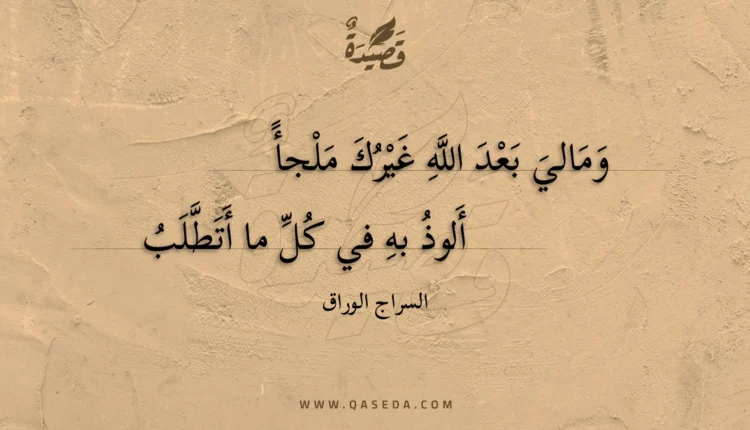 قَصِيدَةٌ
وَمَاليَ بَعْدَ اللَّهِ غَيْرُكَ مَلْجأً
أَلوذُ بهِ في كُلِّ ما أَتَطَلَّبُ
السراج الوراق
WWW.QASEDA.COM